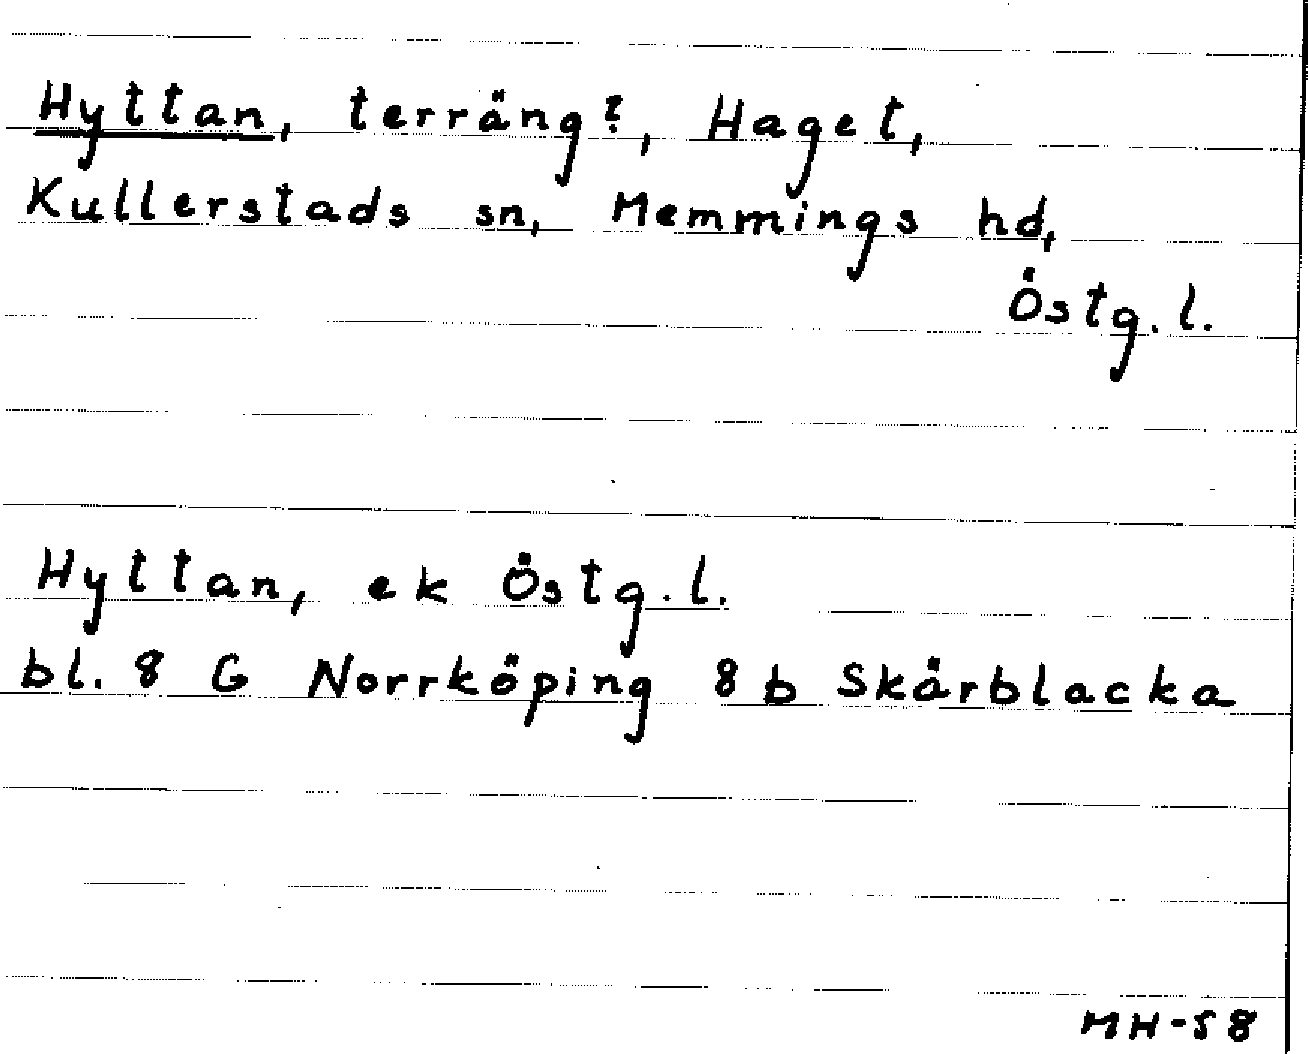 Hyttan, terräng?, Haget,
Kullerstads sn, Memmings hd,
Östg. l.
Hyttan, ek Östg. l.
bl. 8 G Norrköping 8 b Skärblacka
MH-58